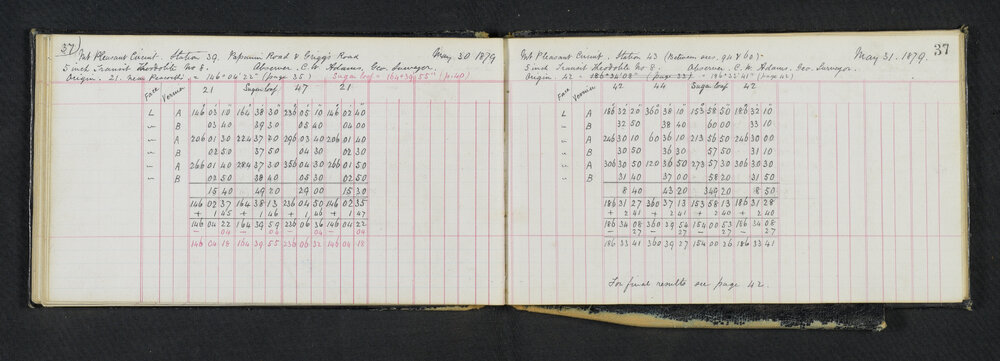 37)
Mt Pleasant Circuit. Station 39. Papanui Road & Grigg's Road May 30 1879
5 inch Transit Theodolite No 8. Observer. C. W. Adams, Geo. Surveyor.
Origin. 21. (page 35) = 146° 04' 22" Sugar loaf = 164° 39' 55" (p. 40)
Face Vernier 21 Sugar loaf 47 21
L A 146 03 10 164 38 30 236 05 10 146 02 40
" B 03 40 39 30 05 40 04 00
" A 206 01 30 224 37 20 296 03 40 206 01 40
" B 02 50 37 50 04 30 02 30
" A 266 01 40 284 37 30 356 04 30 266 01 50
" B 02 50 38 40 05 30 02 50
15 40 49 20 29 00 15 30
146 02 37 164 38 13 236 04 50 146 02 35
+ 1 45 + 1 46 + 1 46 + 1 47
146 04 22 164 39 59 236 06 36 146 04 22
- 04 - 04 - 04 - 04
146 04 18 164 39 55 236 06 32 146 04 18
37
Mt Pleasant Circuit. Station 43 (Between secs. 
May 31. 1879.
5 inch Transit Theodolite No 8. Observer C. W. Adams. Geo. Surveyor.
Origin. 42 = 186° 34' 08" (page 33) = 186° 33' 41" (page 42)
Face Vernier 42 44 Sugar loaf 42
L A 186 32 20 360 38 10 153 58 50 186 32 10
" B 32 50 38 40 60 00 33 10
" A 246 30 10 60 36 10 213 56 50 246 30 00
" B 30 50 36 30 57 50 31 10
" A 306 30 50 120 36 50 273 57 30 306 30 30
" B 31 40 37 00 58 20 31 50
8 40 43 20 349 20 8 50
186 31 27 360 37 13 153 58 13 186 31 28
+ 2 41 + 2 41 + 2 40 + 2 40
186 34 08 360 39 54 154 00 53 186 34 08
- 27 - 27 - 27 - 27
186 33 41 360 39 27 154 00 26 186 33 41
For final results see page 42.